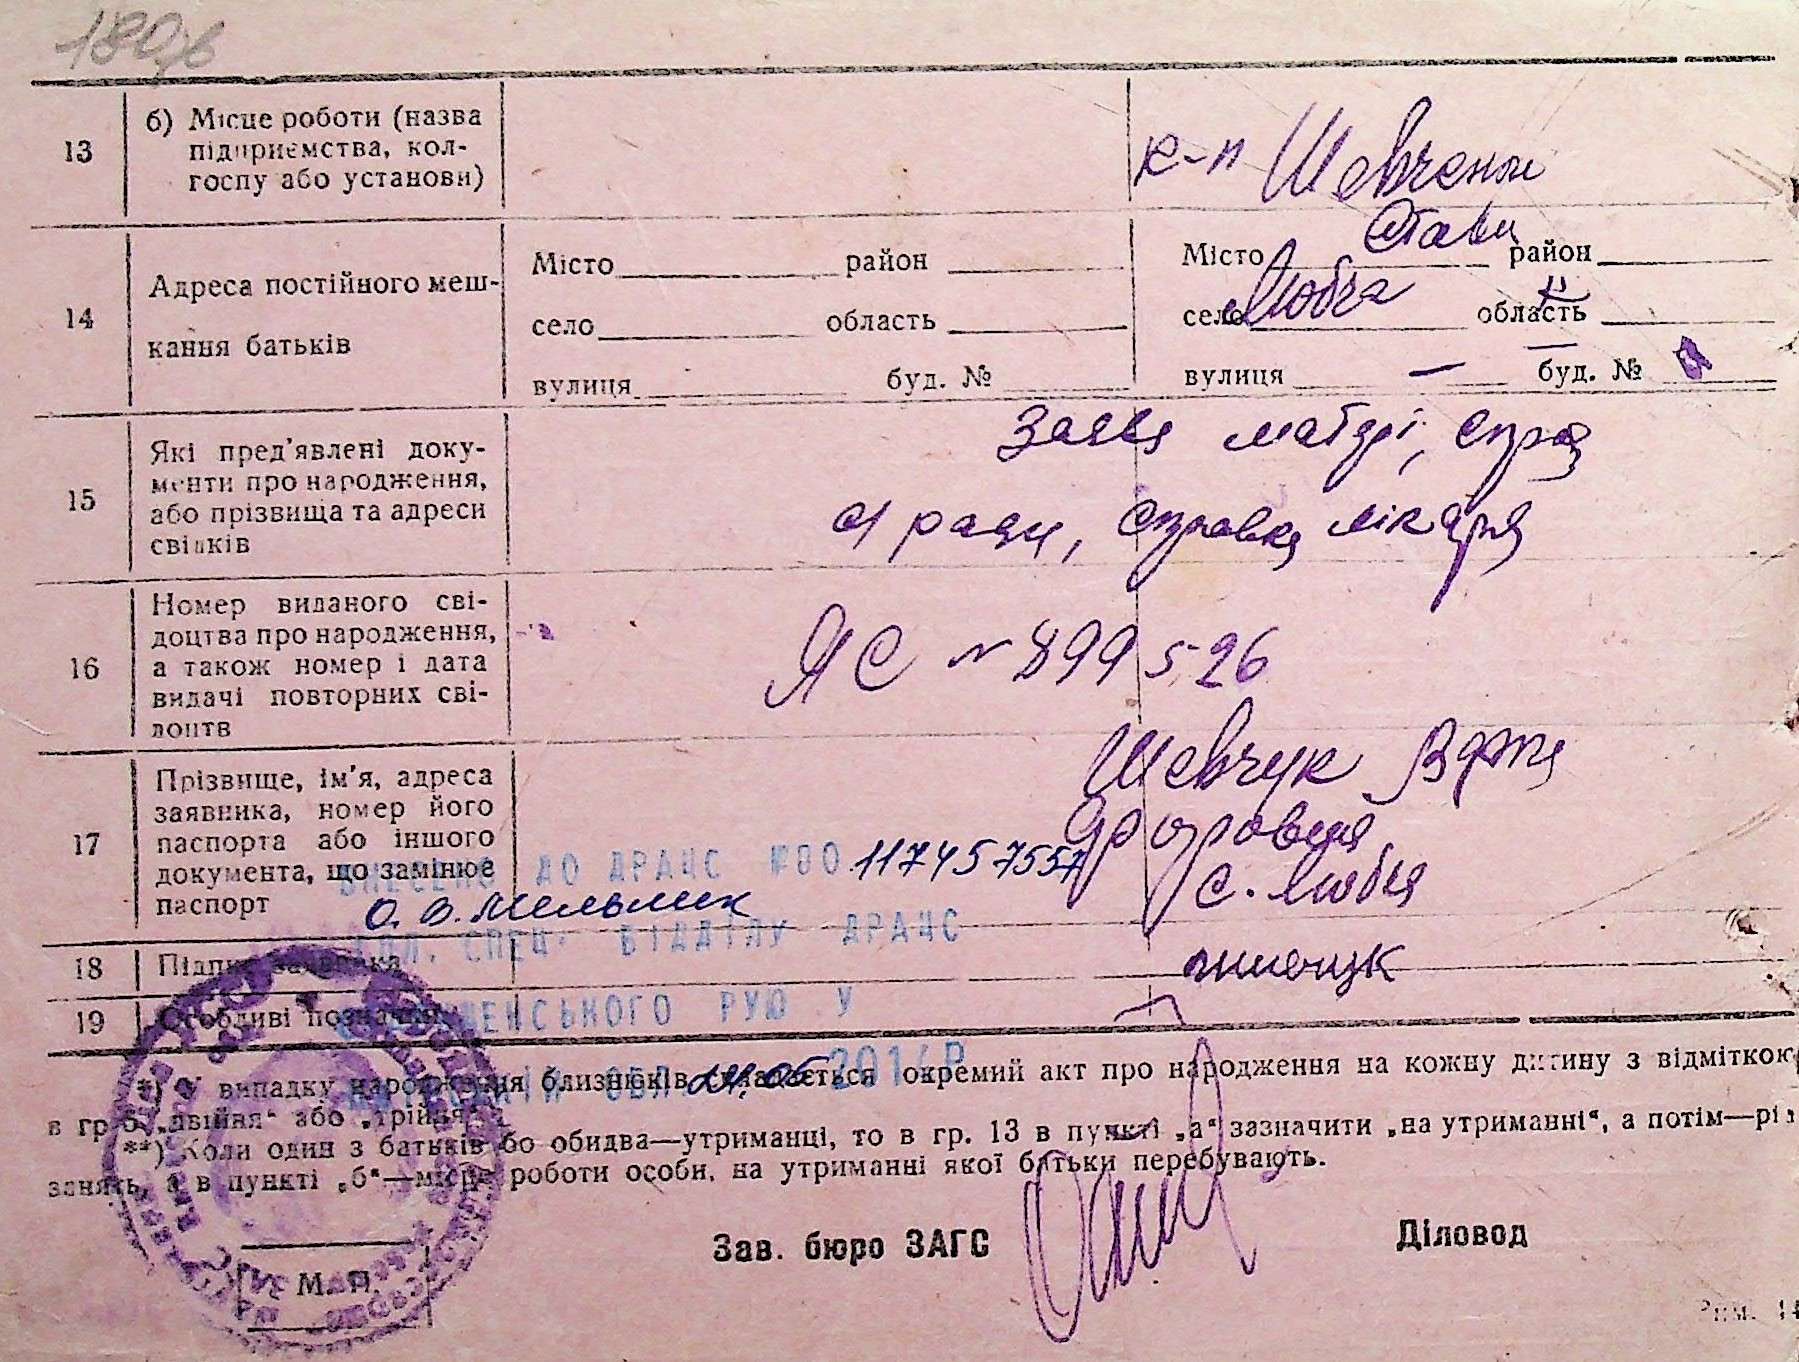 13
б) Місце роботи (назва
підприємства, кол-
госпу або установи)
к-п Шевченка
14
Адреса постійного меш-
кання батьків
Місто район
село область
вулиця буд. №
Стави
Місто район
село Любча область
вулиця — буд. №
15
Які пред'явлені доку-
менти про народження,
або прізвища та адреси
свідків
Заява матері, справ
с/ ради, справка лікаря
16
Номер виданого сві-
доцтва про народження,
а також номер і дата
видачі повторних сві-
доцтв
ЯС № 899526
17
Прізвище, ім'я, адреса
заявника, номер його
паспорта або іншого
документа, що замінює
паспорт
Шевчук
с. Любча
ВНЕСЕНО ДО ДРАЦС №00117457557
О. В. Мельник
СПЕЦ. ВІДДІЛУ ДРАЦС
18
Підпис заявника
19
Особливі позначки
РУЮ У
ОБЛ. 2014Р
*) У випадку народження близнюків складається окремий акт про народження на кожну дитину з відміткою
в гр. 6 „двійня“ або „трійня“
**) Коли один з батьків або обидва—утриманці, то в гр. 13 в пункті „а“ зазначити „на утриманні“, а потім—рід
занять, а в пункті „б“—місце роботи особи, на утриманні якої батьки перебувають.
Зав. бюро ЗАГС
Діловод
М. П.